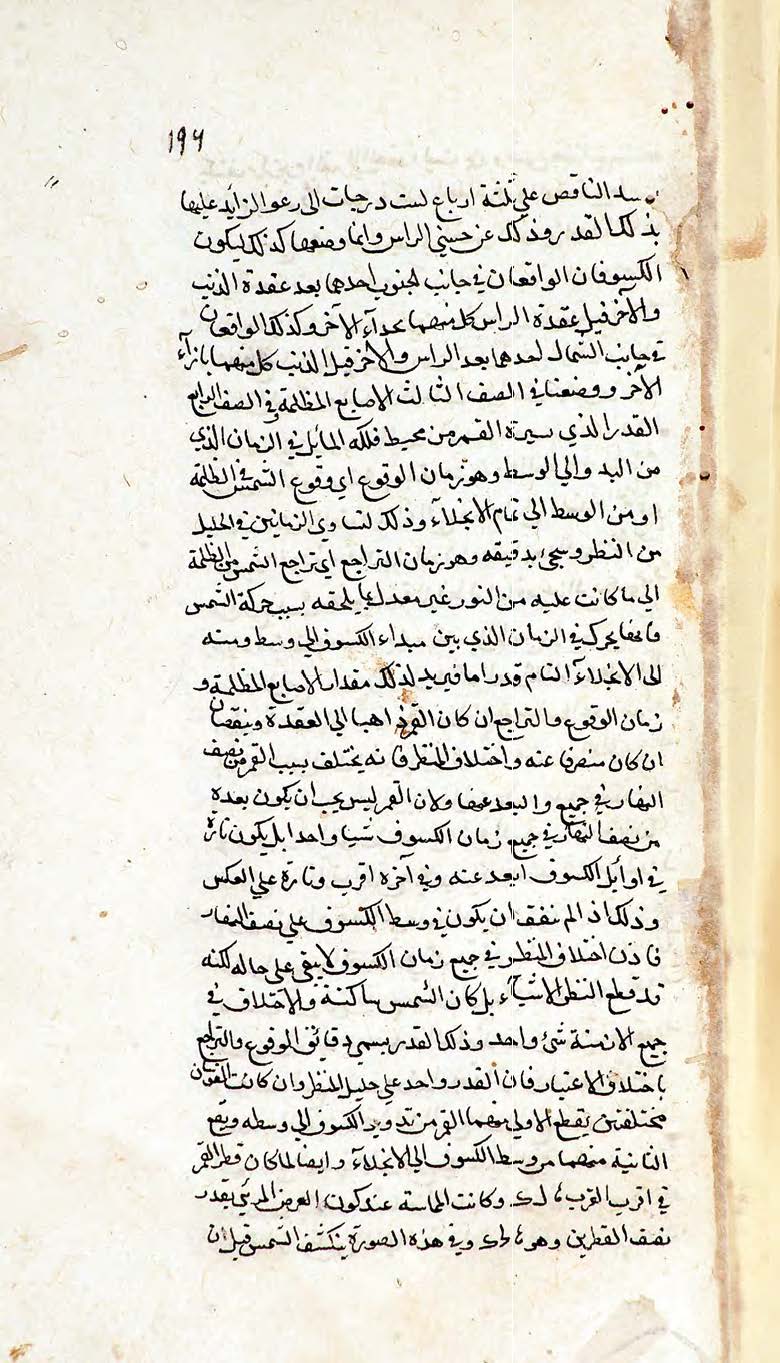 ١٩٦
الناقص على ثلثة ارباع لست درجات الى رعو الزايد عليها
بذلك القدر وذلك عن جنبتي الراس وانما وضعها كذلك ليكون
الكسوفان الواقعان في جانب الجنوب احدهما بعد عقدة الذنب
والآخر قبل عقدة الراس كل منهما بحذآء الآخر وكذلك الواقعان
في جانب الشمال احدهما بعد الراس والآخر قبل الذنب كل منهما بازآء
الآخر ووضعنا في الصف الثالث الاصابع المظلمة وفي الصف الرابع
القدر الذي سيرة القمر من محيط فلكه المائل في الزمان الذي
من البدو الي الوسط وهو زمان الوقوع اي وقوع الشمس في الظلمة
او من الوسط الي تمام الانجلآء وذلك لتساوي الزمانين في الجليل
من النظر وسيجئ بدقيقه وهو زمان التراجع اي تراجع الشمس من الظلمة
الي ما كانت عليه من النور غير معدل بما يلحقه بسبب حركة الشمس
فانها يحرك في الزمان الذي بين مبداء الكسوف الي وسطه ومنه
الى الانجلاء التام قدرا ما فيزيد لذلك مقدار الاصابع المظلمة و
زمان الوقوع والتراجع ان كان القمر ذاهبا الي العقدة وينقصان
ان كان منصرفا عنه واختلاف المنظر فانه يختلف بسبب القمر من نصف
النهار في جميع والبعد عنها ولان القمر ليس يجب ان يكون بعده
من نصف النهار في جميع زمان الكسوف شيا واحدا بل يكون تارة
في اوايل الكسوف ابعد عنه وفي آخره اقرب وتارة علي العكس
وذلك اذا لم يتفق ان يكون في وسط الكسوف علي نصف النهار
فاذن اختلاف المنظر في جميع زمان الكسوف لا يبقي على حاله لكنه
قد قطع النظر الاشياء بل كان الشمس ساكنة والاختلاف في
جميع الازمنة شئ واحد وذلك القدر يسمي دقائق الوقوع والتراجع
باختلاف الاعتبار فان القدر واحد علي جليل المنظر وان كانت القوتان
مختلفتين يقطع الاولي منهما القمر من بدو الكسوف الي وسطه ويقع
الثانية منهما من وسط الكسوف الي الانجلآء وايضا لما كان قطر القمر
في اقرب القرب وكانت المماسة عند كون العرض المرئي بقدر
نصف القطرين وهو وفي هذه الصورة ينكشف الشمس قبل ان